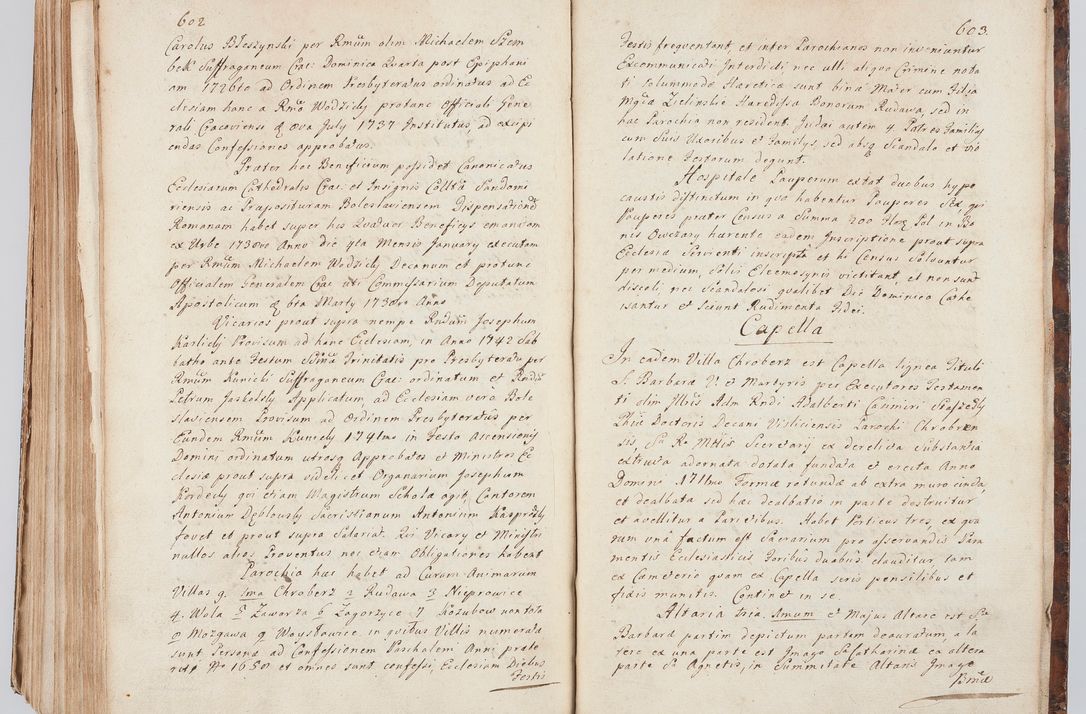 602
Carolus Błeszynski per Rmum olim Michaelem Szem
bek Suffraganeum Crac: Dominica Quarta post Epiphani
am 1726to ad Ordinem Presbyteratus ordinatus ad Ec
clesiam hanc a Rmo Wodzicky protunc Officiali Gene
rali Cracoviensi July 1737 Institutus, ad excipi
endas Confessiones approbatus.
Prater hoc Beneficium possidet Canonicatus
Ecclesiarum Cathedralis Crac: et Insignis Collta Sandomi
riensis ac Praposituram Boleslaviensem Dispensationem
Romanam habet super his Quatuor Beneficys emanatam
ex Urbe 1738vo Anno die 4ta Mensis January executam
per Rmum Michaelem Wodzicky Decanum et protunc
Officialem Generalem Crac uti Commissarium Deputatum
Apostolicum 6ta Marty 1738vo Anno
Vicarios prout supra nempe Rndum Josephum
Karlicky Provisum ad hanc Ecclesiam, in Anno 1742 Sab
batho ante Festum SSma Trinitatis pro Presbyteratu per
Rmum Kunicki Suffraganeum Crac: ordinatum et Rndum
Petrum Jaskolsky Applicatum ad Ecclesiam vero Bole
slaviensem Provisum ad Ordinem Presbyteratus per
Eundem Rmum Kunicky 1741mo in Festo Ascensionis
Domini ordinatum utrosq Approbatos et Ministros Ec
clesia prout supra videlicet Organarium Josephum
Kordecky qui etiam Magistrum Schola agit, Cantorem
Antonium Dęblowsky Sacristianum Antonium Kasprzcky
fovet et prout supra Salariat. Qui Vicary et Ministri
nullos alios Proventus nec etiam Obligationes habeat
Parochia hac habet ad Curam Animarum
Villas 9. 1ma Chroberz 2 Rudawa 3 Nieprowice
4. Wola 5 Zawarza 6 Zagorzyce 7 Kozubow non tota
8 Mozgawa 9 Woysławice. in quibus Villis numerata
sunt Persona ad Confessionem Paschalem Anni prate
riti No 1650 et omnes sunt confessi, Ecclesiam Diebus
Festis
603.
Festis frequentant et inter Parochianos non inveniantur
Excommunicati Interdicti nec ulli aliquo Crimine nota
ti solummodo Haretica sunt bina Mater cum Filia
Mgca Zielinskie Haredissa Bonorum Rudawa, sed in
hac Parochia non resident. Judai autem 4 Patres Familias
cum Suis Uxoribus et Familys, sed absq Scandalo et vio
latione Festorum degunt.
Hospitale Pauperum extat duobus hypo
caustis distinctum in quo habentur Pauperes Sex, qui
Pauperes prater Census a Summa 200 Flor Pol in Bo
nis Owczary harente eadem Inscriptione prout supra
Ecclesia Servienti inscripta et hi Census Solvuntur
per medium, Solis Eleemosynis victitant, et non sunt
discoli, nec Scandalosi qualibet Die Dominico Cathe
isantur et Sciunt Rudimenta Fidei.
Capella
In eadem Villa Chroberz est Capella lignea Tituli
S. Barbara V. et Martyris per Executores Testamen
ti olim Illris Adm Rndi Adalberti Casimiri
Phia Doctoris Decani Visliciensis Parochi Chrobren
sis, Sa R. Mttis Secretary ex derelicta Substantia
extructa adornata dotata fundata et erecta Anno
Domini 1711mo Forma rotunda ab extra muro cincta,
et dealbata sed hac dealbatio in parte destruitur
et avellitur a Parietibus. Habet Porticus tres, ex qua
rum una factum est Sacrarium pro asservandis Para
mentis Ecclesiasticis Foribus duabus clauditur tam
ex Cameterio quam ex Capella seris pensilibus et
fixis munitis. Continet in se.
Altaria tria. 1mum et Majus Altare est Sta
Barbara partim depictum partim deauratum, a la
tere ex una parte est Imago S. Catharina ex altera
parte S. Agnetis, in Summitate Altaris Imago
Bmae